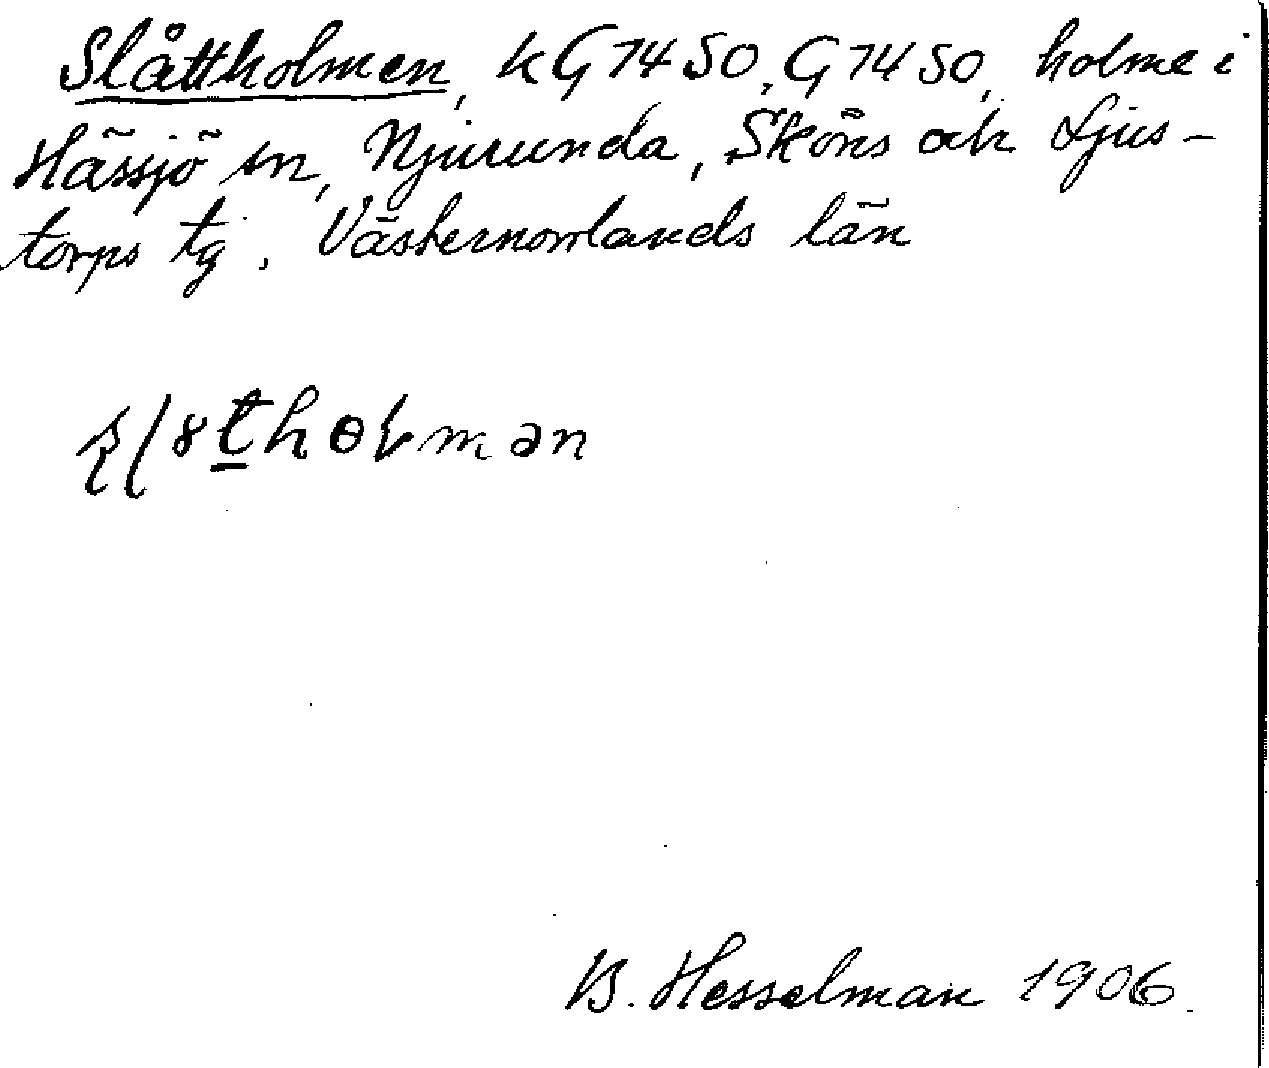 Slåttholmen, kG7450, G7450, holme i
Hässjö sn, Njurunda, Sköns och Ljus-
torps tg. Västernorrlands län
B. Hesselman 1906.